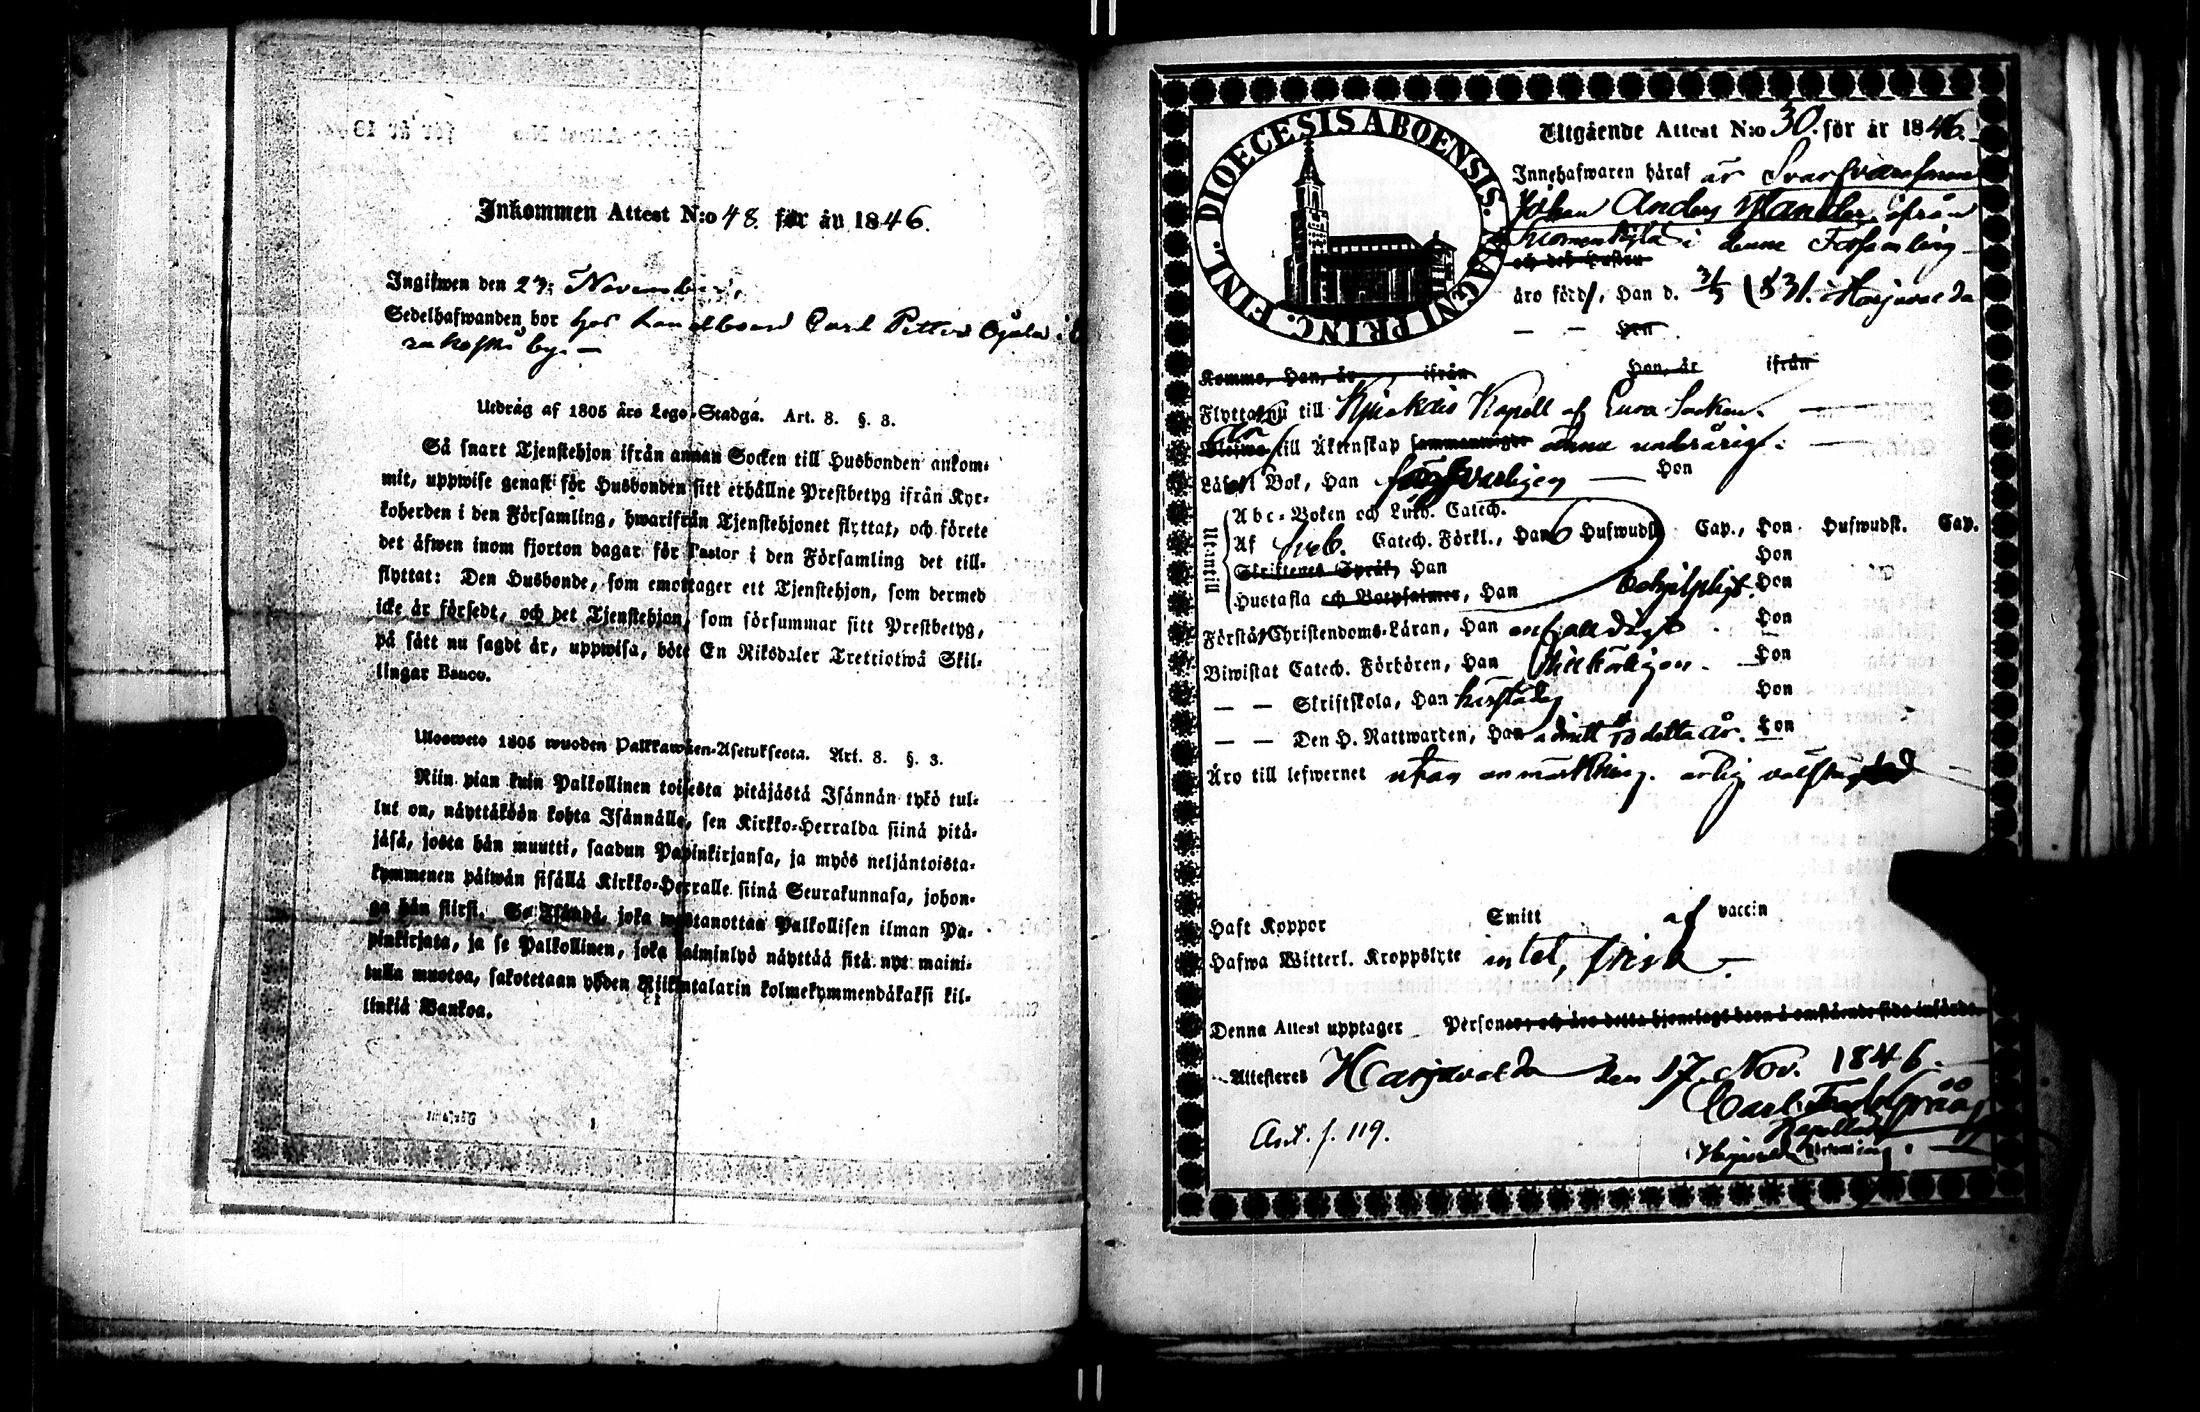 Inkommen Attest N:o 48. för år 1846.
Ingifwen den 23: November.
Sedelhafwanden bor hos Carl Petter Ojala i
by. —
Utdrag af 1805 års Lego-Stadga. Art. 8. §. 3.
Så snart Tjenstehjon ifrån annan Socken till Husbonden ankom-
mit, uppwise genast för Husbonden sitt erhållne Prestbetyg ifrån Kyr-
koherden i den Församling, hwarifrån Tjenstehjonet flyttat, och förete
det äfwen inom fjorton dagar för Pastor i den Församling det till-
flyttat: Den Husbonde, som emottager ett Tjenstehjon, som dermed
icke är försedt, och det Tjenstehjon, som försummar sitt Prestbetyg,
på sätt nu sagdt är, uppwisa, böte En Riksdaler Trettiotwå Skil-
lingar Banco.
Ulosweto 1805 wuoden Palkkawäen-Asetuksesta. Art. 8. §. 3.
Niin pian kuin Palkollinen toisesta pitäjästä Isännän tykö tul-
lut on, näyttäköön kohta Isännälle, sen Kirkko-Herralda siinä pitä-
jäsä, josta hän muutti, saadun Papinkirjansa, ja myös neljäntoista-
kymmenen päiwän sisällä Kirkko-Herralle siinä Seurakunnasa, johon-
ga hän siirsi. Se Isändä, joka wastanottaa Palkollisen ilman Pa-
pinkirjata, ja se Palkollinen, joka laiminlyö näyttää sitä nyt maini-
tulla muotoa, sakotetaan yhden Riikintalarin kolmekymmendäkaksi kil-
linkiä Bankoa.
DIOECESIS ABOENSIS. MAGNI PRINC. FINL.
Utgående Attest N:o 30. för år 1846.
Innehafwaren häraf är
Johan Anders ifrån
i denna Församling
och des Hustru
äro född, Han d. 3/3 1831. i Harjavalda
— — Hon
Komme, Han, år ifrån Hon, år ifrån
Flyttar nu till Kjukais Kapell af Eura Socken. —
till Äktenskap sammanwigde ännu underårig. —
Läser i Bok, Han försvarligen — Hon
Utantill
Abc-Boken och Luth. Catech.
Af Sveb. Catech. Förkl., Han Hufwudst. Cap., Hon Hufwudst. Cap.
Skriftenes Språk, Han Hon
Hustafla och Botpsalmer, Han behjelpligt. Hon
Förstår Christendoms-Läran, Han enfaldigt. Hon
Biwistat Catech. Förhören, Han Hon
— — Skriftskola, Han Hon
— — Den H. Nattwarden, Han detta år. Hon
Äro till lefwernet utan anmärkning. ärlig
Haft Koppor Smitt af vaccin
Hafwa Witterl. Kroppslyte intet, frisk.
Denna Attest upptager Personer, och äro detta hjonelags barn å omstående sida införde.
Attesteres Harjavalda den 17. Nov. 1846.
Carl Fredr.
Kapellan
Ant. f. 119.